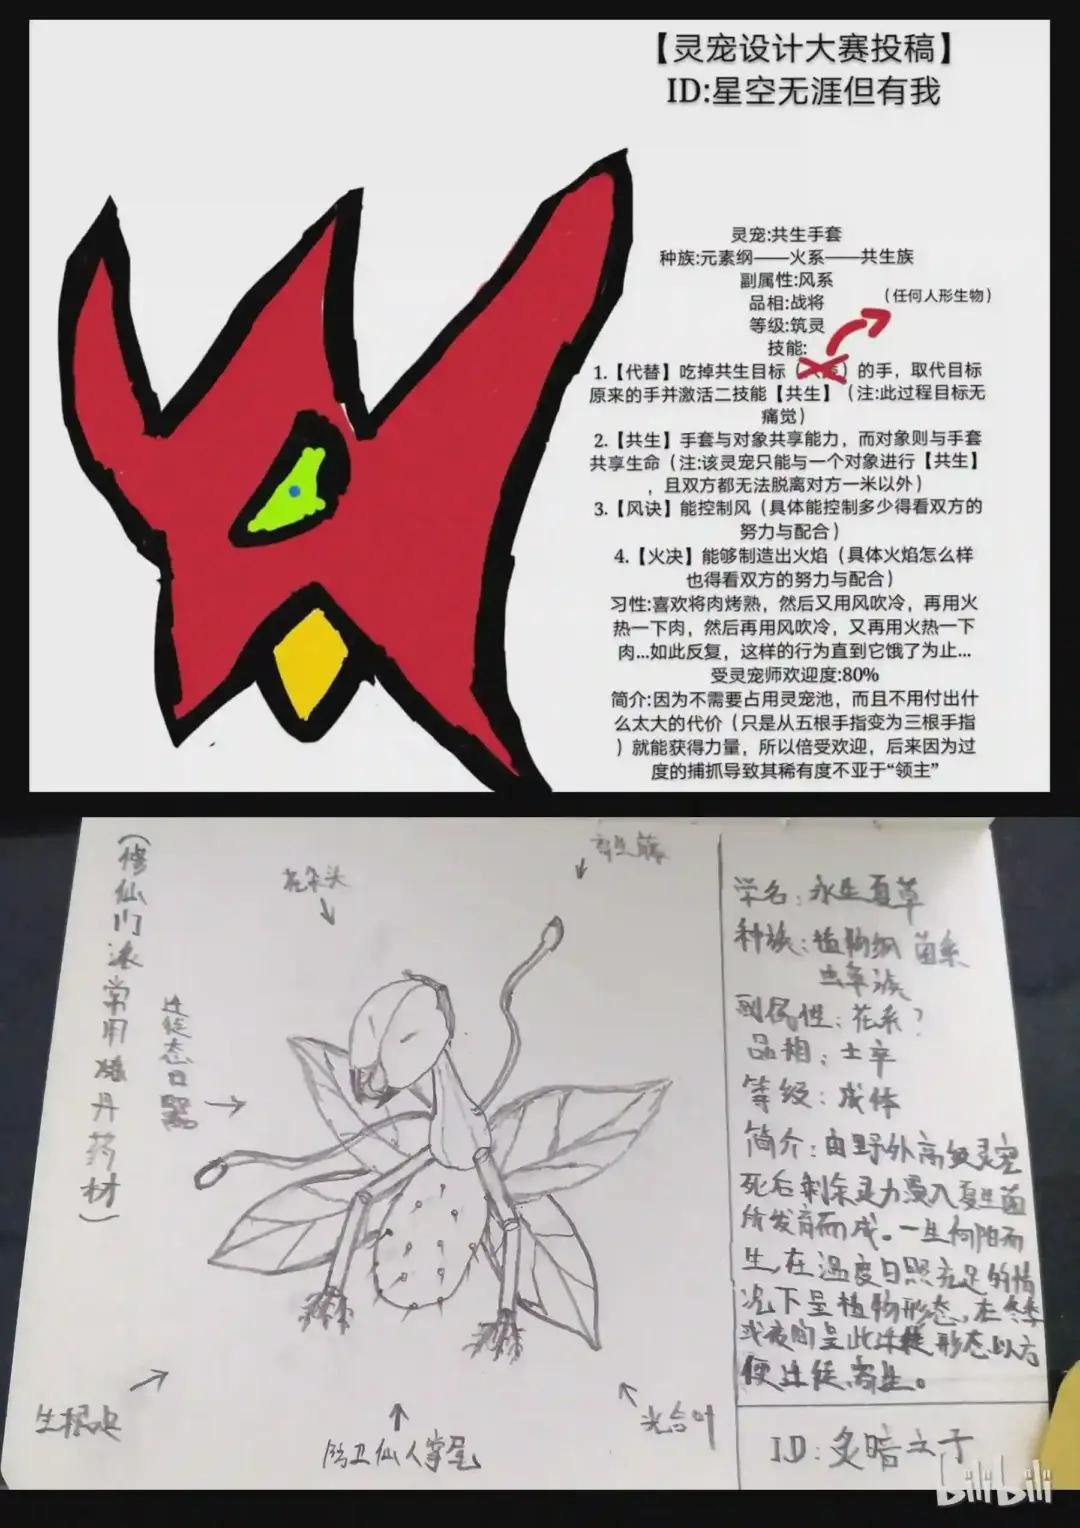 【灵宠设计大赛投稿】
ID:星空无涯但有我
灵宠:共生手套
种族:元素纲——火系——共生族
副属性:风系
品相:战将
(任何人形生物)
等级:筑灵
技能:
1.【代替】吃掉共生目标()的手，取代目标
原来的手并激活二技能【共生】(注:此过程目标无
痛觉)
2.【共生】手套与对象共享能力，而对象则与手套
共享生命(注:该灵宠只能与一个对象进行【共生】
，且双方都无法脱离对方一米以外)
3.【风诀】能控制风(具体能控制多少得看双方的
努力与配合)
4.【火决】能够制造出火焰(具体火焰怎么样
也得看双方的努力与配合)
习性:喜欢将肉烤熟，然后又用风吹冷，再用火
热一下肉，然后再用风吹冷，又再用火热一下
肉...如此反复，这样的行为直到它饿了为止...
受灵宠师欢迎度:80%
简介:因为不需要占用灵宠池，而且不用付出什
么太大的代价(只是从五根手指变为三根手指
)就能获得力量，所以倍受欢迎，后来因为过
度的捕抓导致其稀有度不亚于“领主”
(修仙门派常用炼丹药材)
花朵头
寄生藤
迁徙态日照
生根足
防卫仙人掌尾
光合叶
学名:永生夏草
种族:植物纲 菌系
虫草族
副属性:花系?
品相:士卒
等级:成体
简介:由野外高级灵宠
死后剩余灵力浸入夏生菌
所发育而成。一生向阳而
生,在温度日照充足的情
况下呈植物形态,在冬季
或夜间呈此迁徙形态以方
便迁徙,寄生。
ID:炙暗之子
bilibili